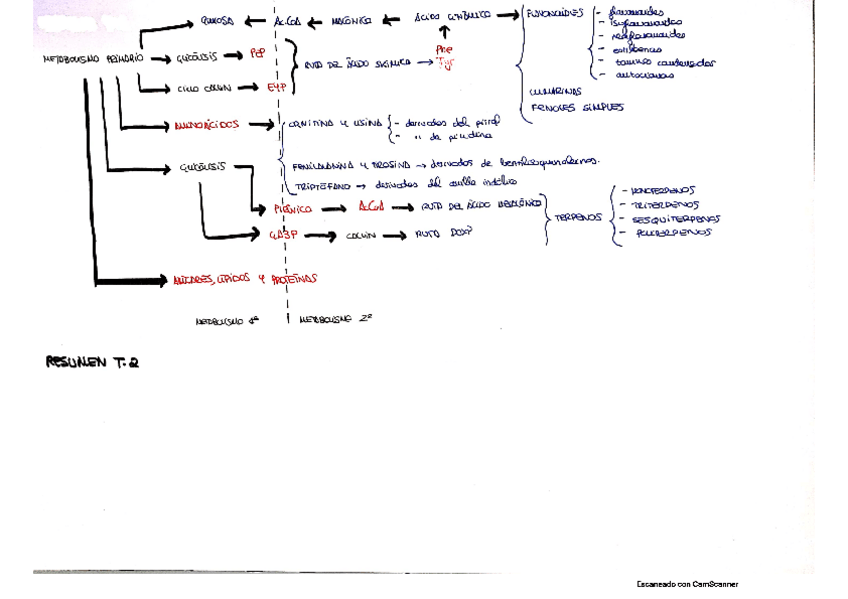 GLUCOSA ← AcCoA ← MALÓNICO ← ÁCIDO CINÁMICO → FLAVONOIDES - flavonoides
- isoflavonoides
- neoflavonoides
- estilbenos
- taninos condensados
- antocianos
CUMARINAS
FENOLES SIMPLES
METABOLISMO PRIMARIO → GLICÓLISIS → PEP
RUTA DEL ÁCIDO SIKIMICO → Phe
Tyr
CICLO CALVIN → E4P
AMINOÁCIDOS → ORNITINA Y LISINA - derivados del pirrol
- " de piridina
FENILALANINA Y TIROSINA → derivados de
TRIPTÓFANO → derivados del anillo indólico
GLICÓLISIS
PIRÚVICO → AcCoA → RUTA DEL ÁCIDO MEVALÓNICO
GA3P → CALVIN → RUTA DOXP
TERPENOS - MONOTERPENOS
- TRITERPENOS
- SESQUITERPENOS
- POLITERPENOS
AZÚCARES, LÍPIDOS Y PROTEÍNAS
METABOLISMO 1º METABOLISMO 2º
RESUMEN T.2
Escaneado con CamScanner